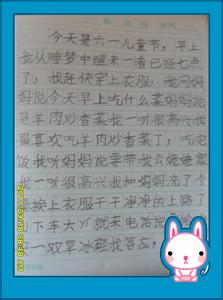 年 月 日
今天是六一儿童节，早上
我从睡梦中醒来一看已经七点
了，我赶快穿上衣服。我问妈
妈说今天早上吃什么菜妈妈说
是羊肉炒香菜我一听很高兴我
最喜欢吃羊肉炒香菜了，吃完
饭我听妈妈说要带我去姥姥家
我一听很高兴我和妈妈洗了个
换上衣服干干净净的上路了
下车大 就来电话说给
一双旱冰鞋我答应